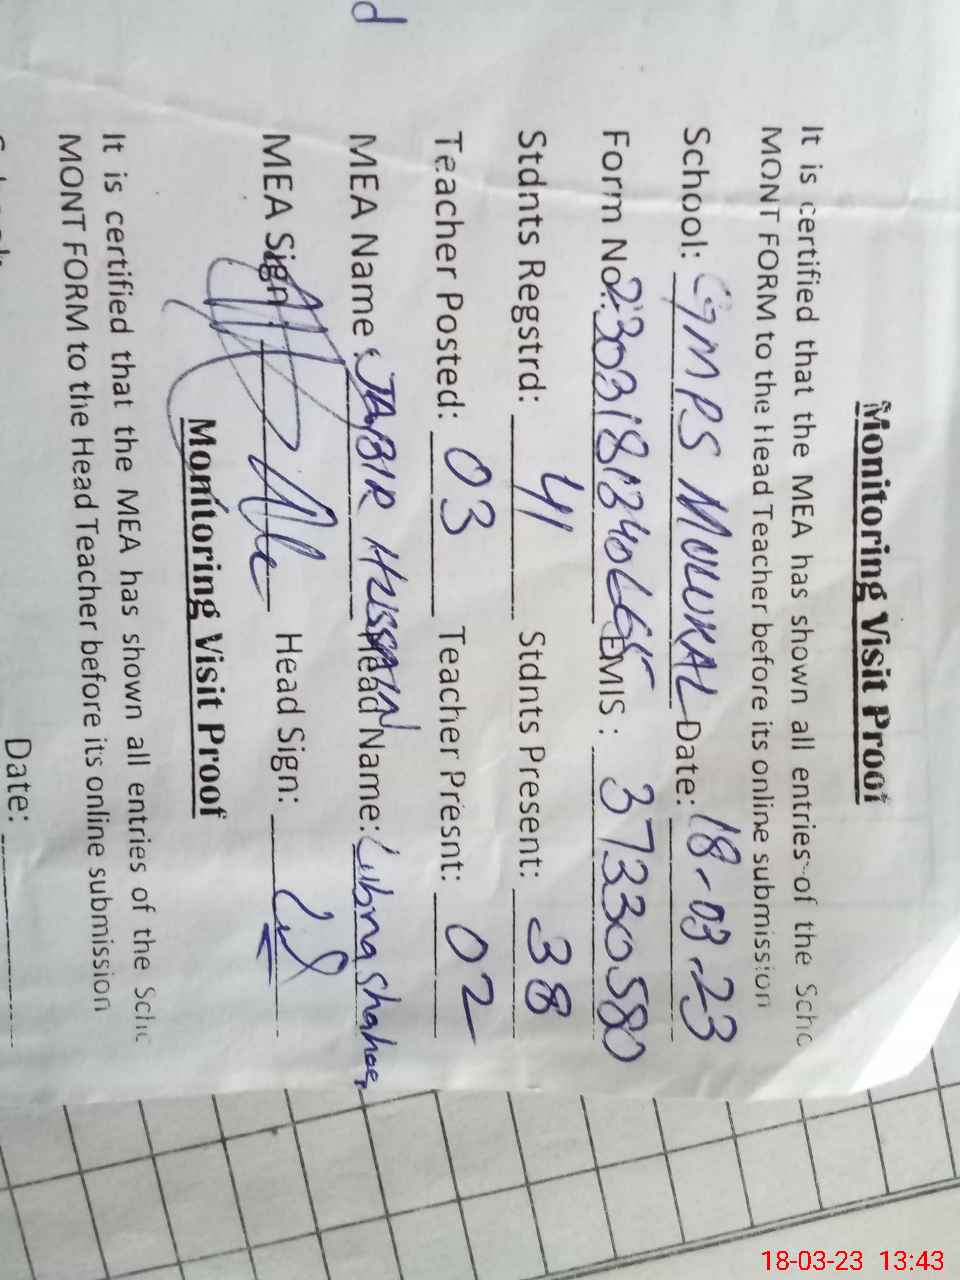 Monitoring Visit Proof
It is certified that the MEA has shown all entries of the Scho
MONT FORM to the Head Teacher before its online submission
School: GMPS Date: 18-03-23
Form No: EMIS : 37330580
Stdnts Regstrd: 41 Stdnts Present: 38
Teacher Posted: 03 Teacher Presnt: 02
MEA Name : JABIR HUSSAIN Head Name: Lubna Shahee
MEA Sign Head Sign:
Monitoring Visit Proof
It is certified that the MEA has shown all entries of the Scho
MONT FORM to the Head Teacher before its online submission
Date:
18-03-23 13:43